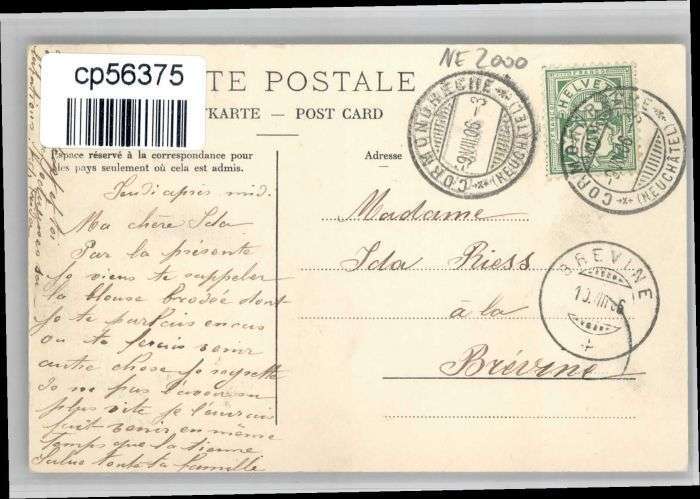 NE 2000
cp56375
TE POSTALE
TKARTE — POST CARD
Espace réservé à la correspondance pour
les pays seulement où cela est admis.
Adresse
CORMONDRÈCHE
(NEUCHÂTEL)
-9.VIII.06.-3
HELVETIA
FRANCO
CORMONDRÈCHE
(NEUCHÂTEL)
BRÉVINE
10.VIII.06
Jeudi après mid.
Ma chère Ida
Par la présente
je viens te rappeler
la blouse brodée dont
je te parlais
ou tu venir
autre chose je regrette
de ne pas l'avoir su
plus vite je l'aurais
fait venir en même
temps que la tienne
Salue toute ta famille
Madame
Ida Riess
à la
Brévine